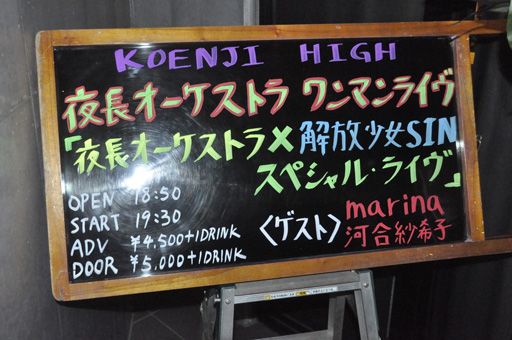 KOENJI HIGH
夜長オーケストラ ワンマンライヴ
「夜長オーケストラ×解放少女SIN
スペシャル・ライヴ」
OPEN 18:50
START 19:30
ADV ¥4,500+1DRINK
DOOR ¥5,000+1DRINK
〈ゲスト〉
marina
河合紗希子